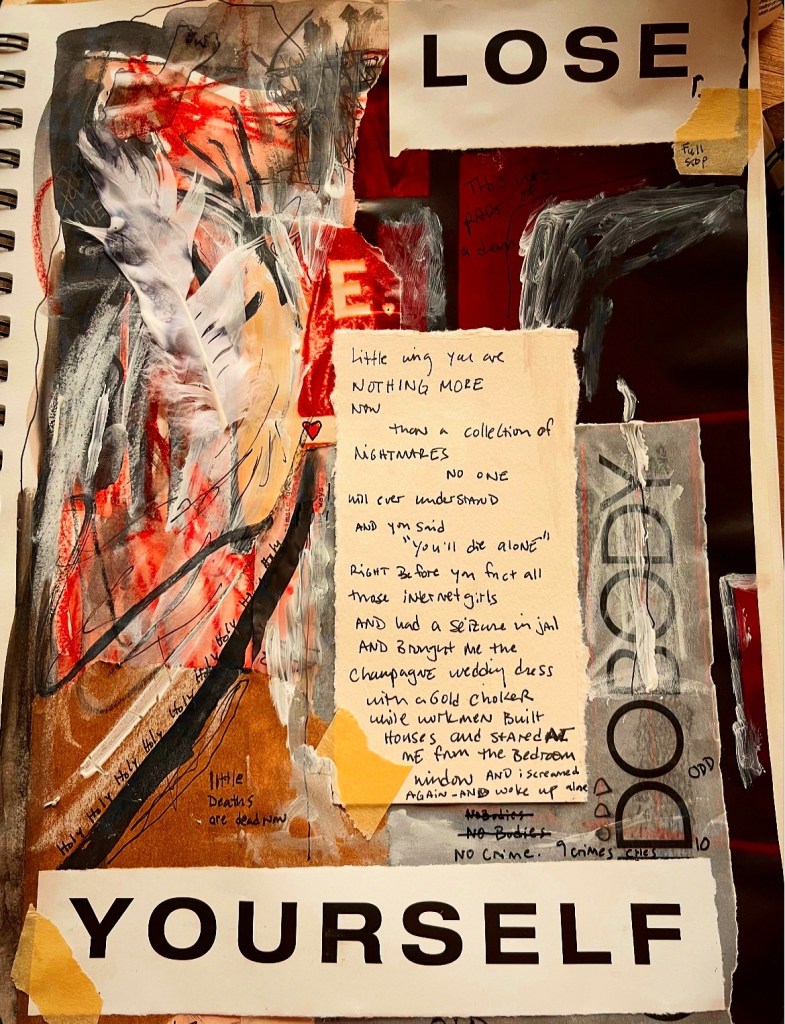 LOSE
r.
Full
Stop
THIS
E.
Little wing you are
NOTHING MORE
NOW
than a collection of
NIGHTMARES
NO ONE
will ever understand
AND you said
"You'll die alone"
RIGHT Before you all
those internet girls
AND had a seizure in jail
AND Brought me the
Champagne wedding dress
with a Gold choker
while workmen Built
Houses and stared AT
ME from the Bedroom
window AND i screamed
AGAIN - AND woke up alone
DO BODY
ODD
ODD
Holy Holy Holy Holy Holy Holy Holy Holy Holy Holy
little
Deaths
are dead now
NoBodies
NO Bodies
NO Crime. 9 crimes
10
YOURSELF